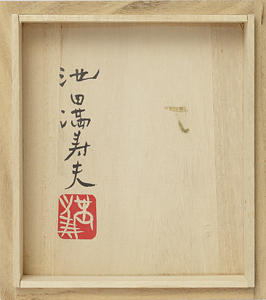 池田満寿夫
満寿